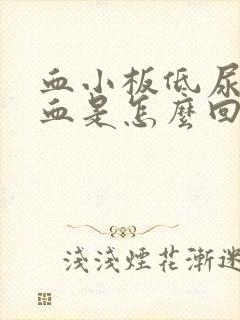 血小板低尿
血是怎麼回
淺淺煙花漸迷